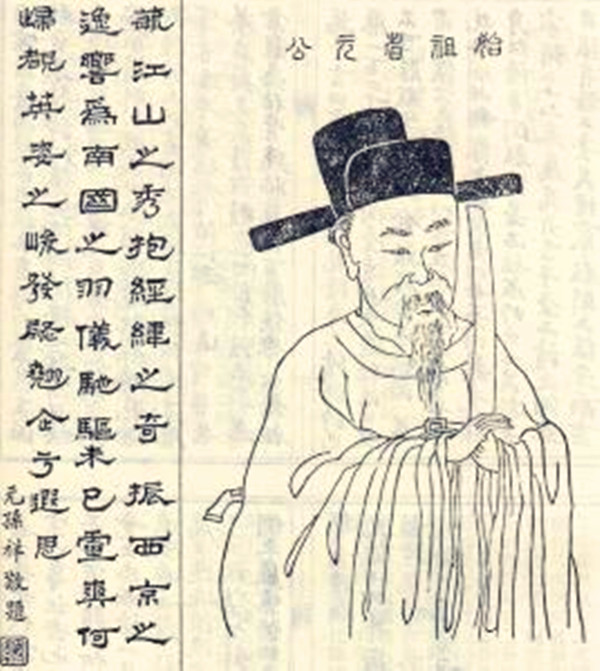 始祖元公
毓江山之秀抱經緯之奇振西京之
逸響爲南國之羽儀馳驅未已靈爽何
歸覩英姿之峻發翹企乎遐思
元孫祥敬題